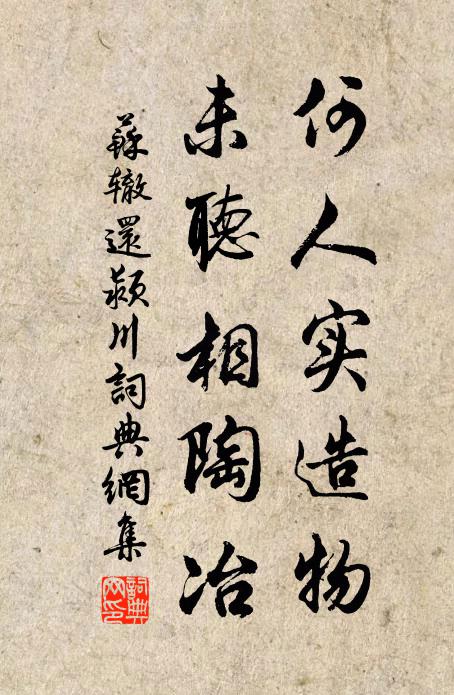 何人实造物
未聽相陶冶
蘇辙還颍川詞典網集
詞典网印